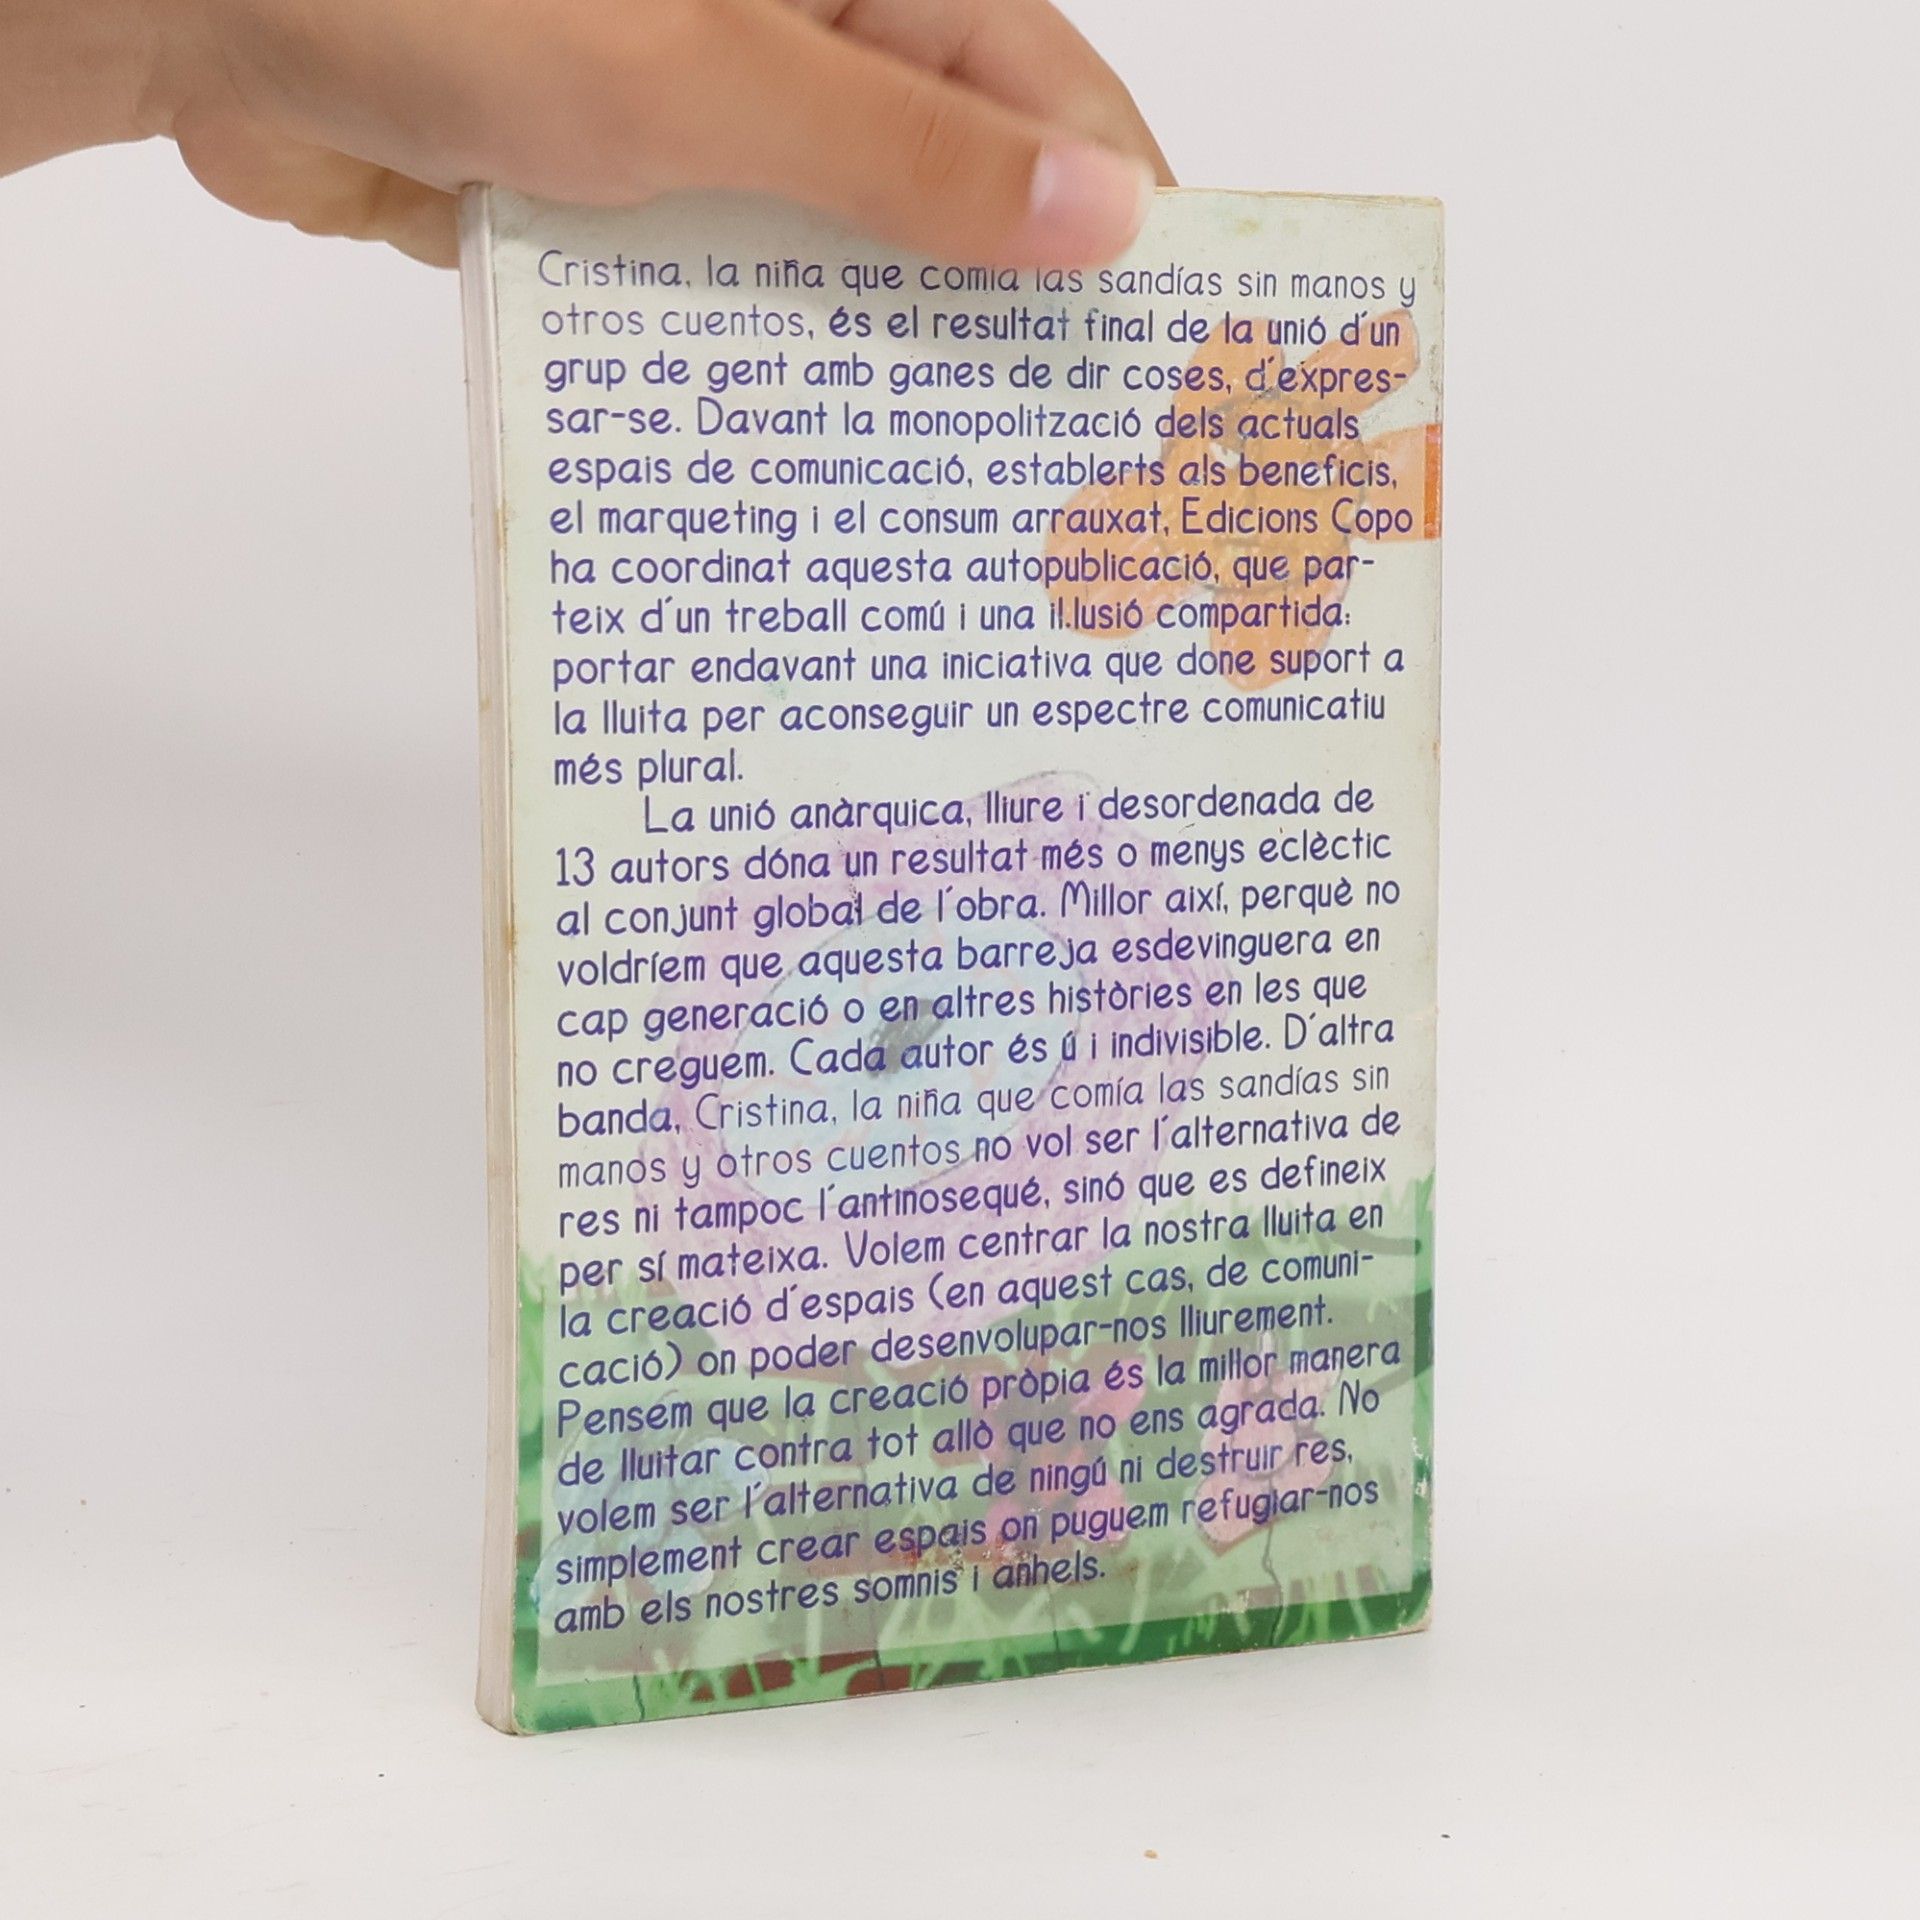 Cristina, la niña que comía las sandías sin manos y
otros cuentos, és el resultat final de la unió d´un
grup de gent amb ganes de dir coses, d´expres-
sar-se. Davant la monopolització dels actuals
espais de comunicació, establerts als beneficis,
el marqueting i el consum arrauxat, Edicions Copo
ha coordinat aquesta autopublicació, que par-
teix d´un treball comú i una il.lusió compartida:
portar endavant una iniciativa que done suport a
la lluita per aconseguir un espectre comunicatiu
més plural.
La unió anàrquica, lliure i desordenada de
13 autors dóna un resultat més o menys eclèctic
al conjunt global de l´obra. Millor així, perquè no
voldríem que aquesta barreja esdevinguera en
cap generació o en altres històries en les que
no creguem. Cada autor és ú i indivisible. D´altra
banda, Cristina, la niña que comía las sandías sin
manos y otros cuentos no vol ser l´alternativa de
res ni tampoc l´antinosequé, sinó que es defineix
per sí mateixa. Volem centrar la nostra lluita en
la creació d´espais (en aquest cas, de comuni-
cació) on poder desenvolupar-nos lliurement.
Pensem que la creació pròpia és la millor manera
de lluitar contra tot allò que no ens agrada. No
volem ser l´alternativa de ningú ni destruir res,
simplement crear espais on puguem refugiar-nos
amb els nostres somnis i anhels.